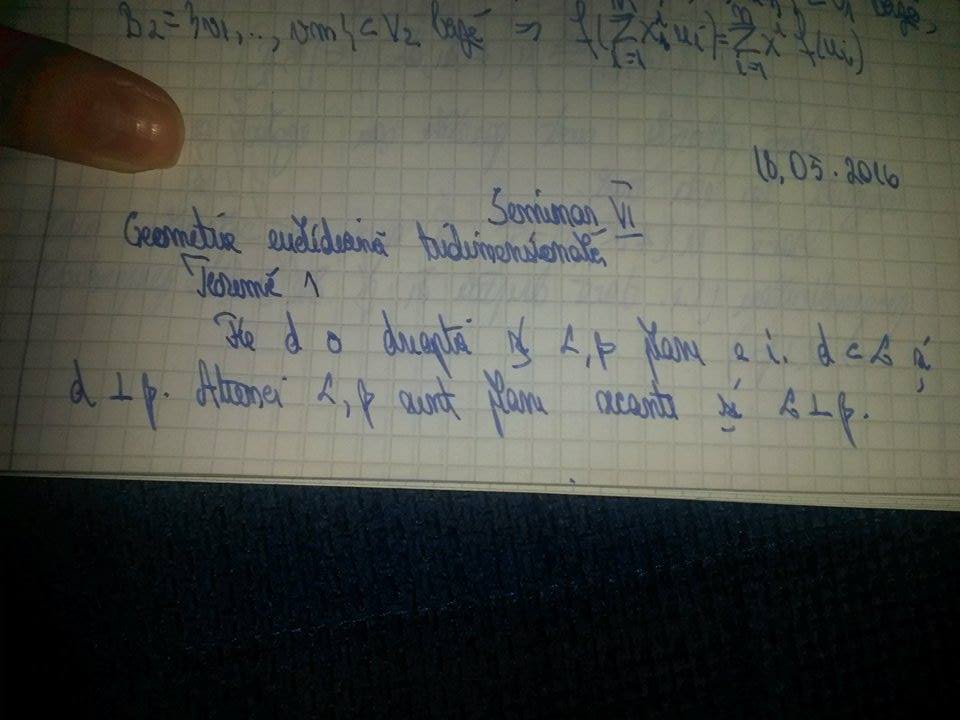 B₂={v₁,..,vm}⊂V₂ bază ⇒ f(∑ⁿᵢ₌₁ xⁱuᵢ)=∑ⁿᵢ₌₁ xⁱ f(uᵢ)
16.05.2016
Seminar VI
Geometria euclidiană tridimensională
Teoremă 1
Fie d o dreaptă și α,β plane a.î. d⊂α și
d⊥β. Atunci α,β sunt plane secante și α⊥β.